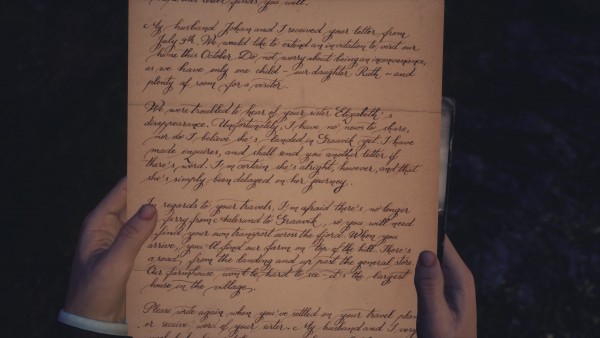 letter finds you well.
My husband Johan and I received your letter from
July 9th. We would like to extend an invitation to visit our
home this October. Do not worry about being an inconvenience,
as we have only one child - our daughter Ruth - and
plenty of room for a visitor.
We were troubled to hear of your sister Elizabeth's
disappearance. Unfortunately, I have no news to share,
nor do I believe she's landed in Graavik yet. I have
made enquires, and shall send you another letter if
there's word. I'm certain she's alright, however, and that
she's simply been delayed on her journey.
In regards to your travels, I'm afraid there's no longer
a ferry from to Graavik, so you will need
to find your own transport across the fjord. When you
arrive, you'll find our farm on top of the hill. There's
a road from the landing and up past the general store.
Our farmhouse won't be hard to see - it's the largest
house in the village.
Please write again when you've settled on your travel plans
or receive word of your sister. My husband and I very